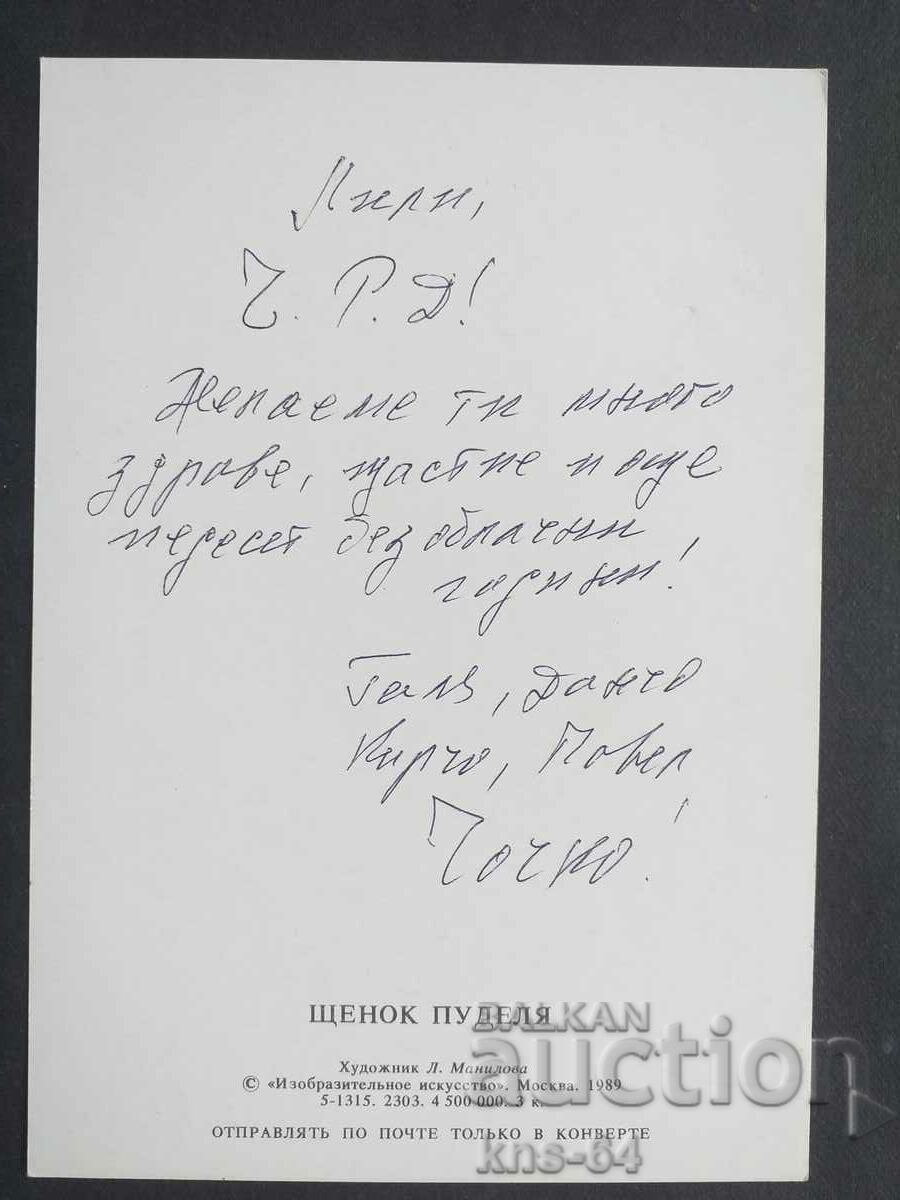 Лили,
Ч. Р. Д!
Желаеме ти много
здраве, щастие и още
педесет безоблачни
години!
Галя, Данчо
Кирчо, Павел
Чочко!
ЩЕНОК ПУДЕЛЯ
Художник Л. Манилова
© «Изобразительное искусство». Москва. 1989
5-1315. 2303. 4 500 000. 3 к.
ОТПРАВЛЯТЬ ПО ПОЧТЕ ТОЛЬКО В КОНВЕРТЕ
BALKAN
auction
kns-64